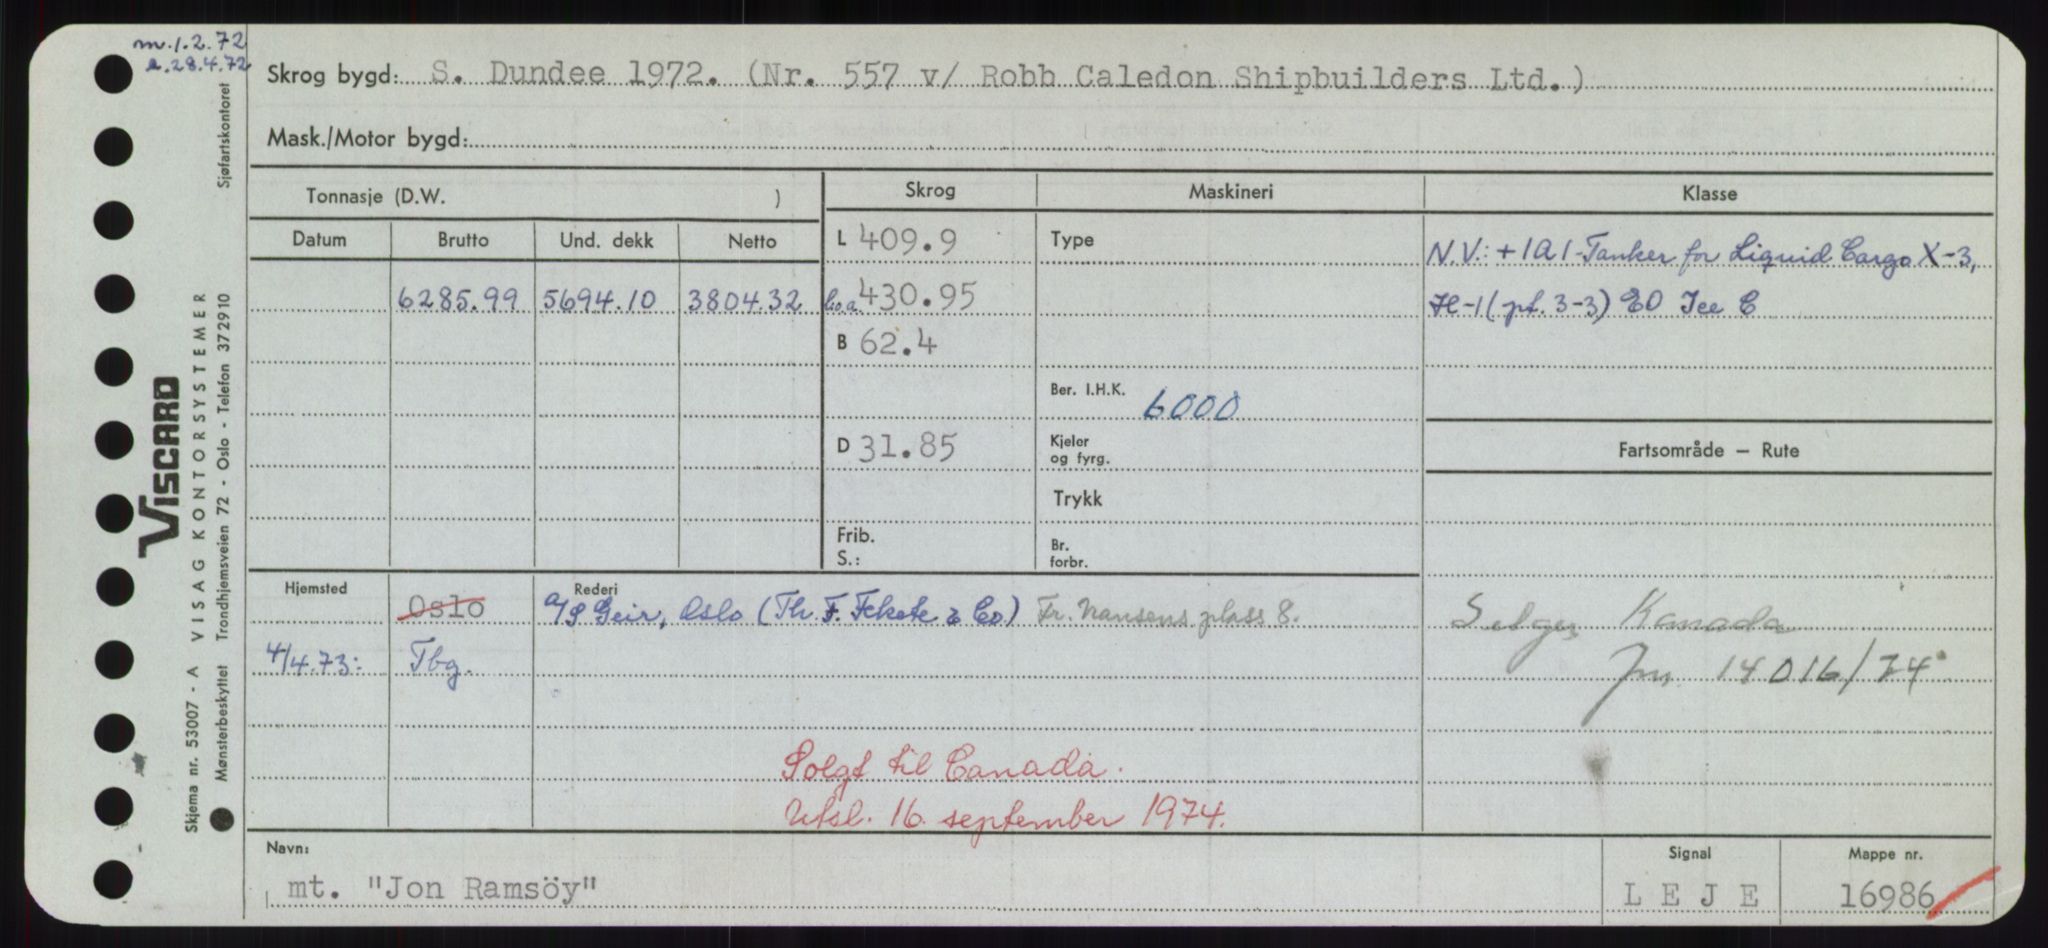 m.1.2.72
a.28.4.72
Skrog bygd: S. Dundee 1972. (Nr. 557 v/ Robb Caledon Shipbuilders Ltd.)
Mask./Motor bygd:
Tonnasje (D.W. )
Skrog
Maskineri
Klasse
Datum
Brutto
Und. dekk
Netto
L 409.9
Type
N.V.: +1A1-Tanker for Liquid Cargo X-3,
6285.99 5694.10 3804.32
l.o.a. 430.95
H-1 (pt. 3-3) EO Ice C
B 62.4
Ber. I.H.K. 6000
D 31.85
Kjeler
og fyrg.
Fartsområde – Rute
Trykk
Frib.
S.:
Br.
forbr.
Hjemsted
Oslo
Rederi
A/S Geir, Oslo (Th. F. Fekete & Co) Fr. Nansens plass 8.
Selges Kanada
4/4.73: Tbg.
Jnr. 14016/74
Solgt til Canada.
Utsl. 16. september 1974.
Navn:
mt. "Jon Ramsöy"
Signal
LEJE
Mappe nr.
16986
VISCARD
Skjema nr. 53007 - A VISAG KONTORSYSTEMER
Mønsterbeskyttet Trondhjemsveien 72 - Oslo - Telefon 372910 Sjøfartskontoret